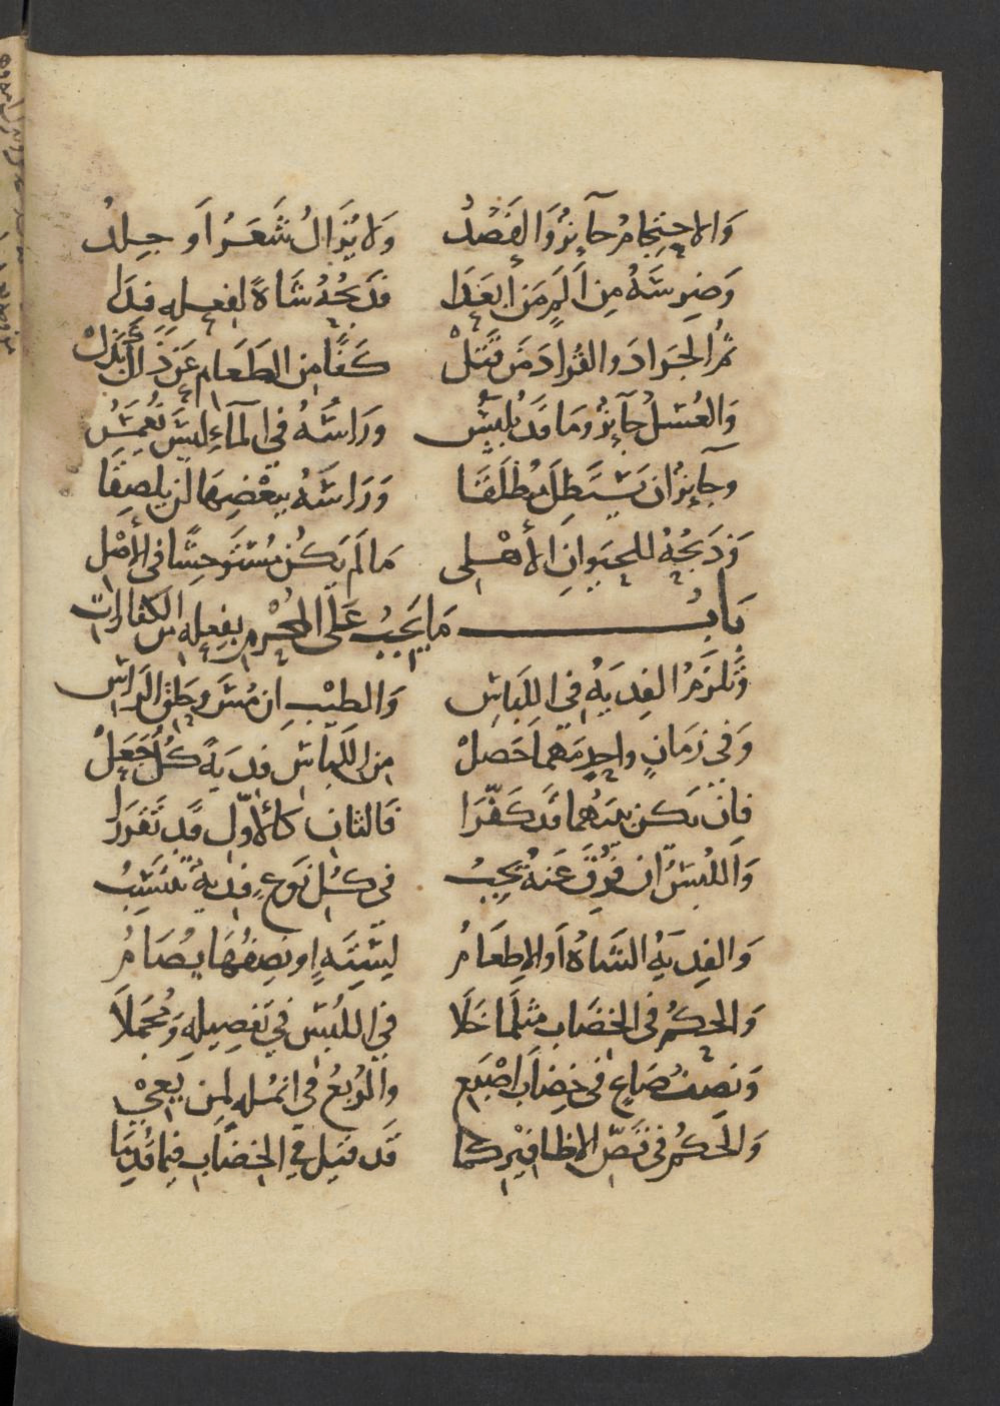 وَالاحتِجَامُ جآيزٌ وَالفَصْدُ وَلا يُزَالُ شَعَرٌ اَو جِلدُ
وَضِرسَهُ مِن اَلَمٍ مَن أبعَدَا فذبحُهُ شَاةً لِفِعلِهِ فِدَا
ثمَّ الجَرَادَ والقُرادَ مَن قَتَلْ كَفًّا مِن الطَعَامِ عَن ذَاكَ بَذَلْ
وَالغُسْلُ جآيزٌ وَمَا قَد يُلبَسُ وَرَاسَهُ في المآءِ لَيسَ يُغمَسُ
وجآيزٌ ان يَستَظِلَّ مُطْلَقَا وَرَاسَهُ بِبَعْضِهَا لن يلصِقَا
وَذبحُهُ للحيَوانِ الأهْلِي مَا لَم يَكُن مُستَوحِشًا في الأصْلِ
بَابُ مَا يَجِبُ عَلَى المُحْرِمِ بفِعلِهِ مِن الكفّارات
وَتَلزَمُ الفِديَةُ في اللِّبَاسِ وَالطيْبِ ان مُسَّ وحَلقِ الرَاسِ
وَفي زمَانٍ واحِدٍ مَهمَا حَصَلْ مِن اللّبَاسِ فِديَةً كُلٌّ جَعَلْ
فاِن يَكن بَينَهُما قَد كَفّرَا فَالثانِ كالأوّلِ قَد تَقَررَا
وَاللُبسُ ان فُرِّقَ عَنهُ يَجِبُ في كُلِّ نَوعٍ فِديةٌ تنتَسِبُ
وَالفِديَةُ الشَاةُ اَو الاِطعَامُ لِسِتّةٍ او نِصفُهَا يُصَامُ
وَالحكمُ في الخضَابِ مثلمَا خَلَا في اللُبسِ في تَفصِيلِهِ وَمُجمَلاَ
وَنصفُ صَاعٍ في خِضَابِ اصْبَعِ والرُبعُ في انمُلِهِ لِمَن يَعِي
وَالحُكمُ في قَصِّ الاظافيْرِ كما قَد قيلَ في الخضَابِ فيمَا قُدِّمَا